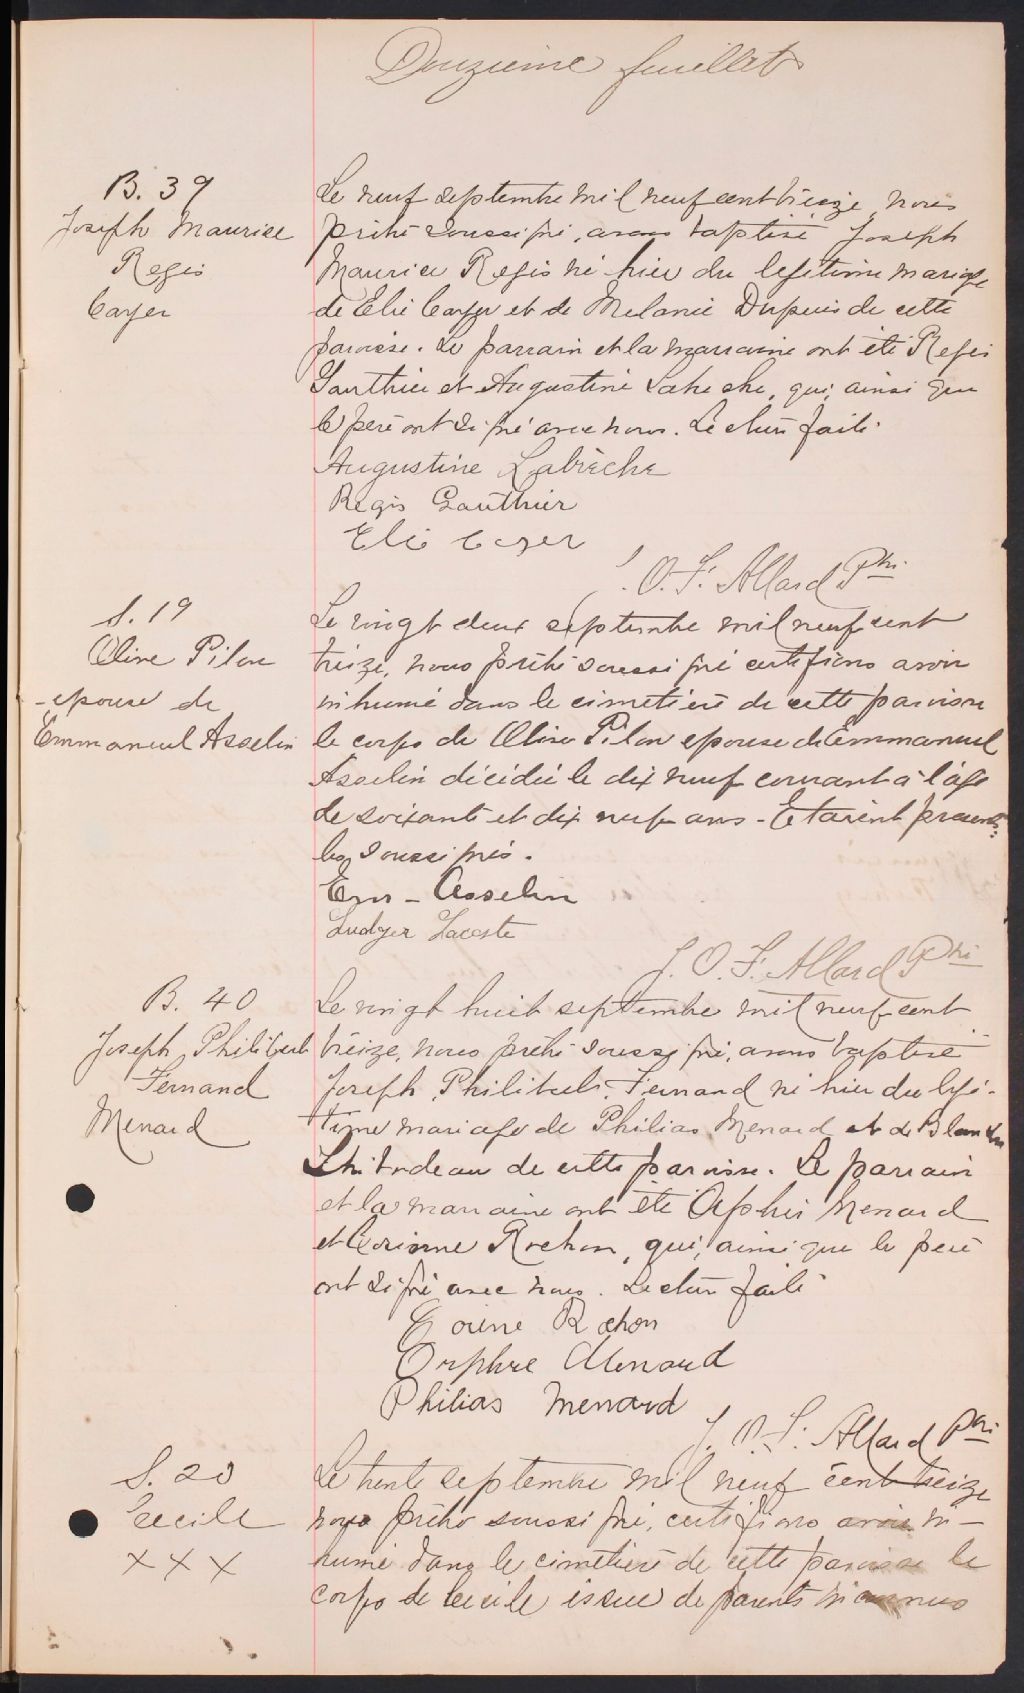 Douzieme feuillet
B. 39
Joseph Maurice
Regis
Cayer
Le neuf septembre mil neuf cent treize, nous
prêtre soussigné, avons baptisé Joseph
Maurice Regis né hier du legitime mariage
de Elie Cayer et de Melanie Dupuis de cette
paroisse. Le parrain et la marraine ont été Regis
Gauthier et Augustine Labreche, qui, ainsi que
le père ont signé avec nous. Lecture faite.
Augustine Labrèche
Regis Gauthier
Elie Cayer
J. O. F. Allard Ptre
S. 19
Olive Pilon
-epouse de
Emmanuel Asselin
Le vingt deux septembre mil neuf cent
treize, nous prêtre soussigné certifions avoir
inhumé dans le cimetière de cette paroisse
le corps de Olive Pilon epouse de Emmanuel
Asselin décédée le dix neuf courant à l'âge
de soixante et dix neuf ans - Etaient presents:
les soussignés.
Em - Asselin
Ludger Lacoste
J. O. F. Allard Ptre
B. 40
Joseph Philibert
Fernand
Menard
Le vingt huit septembre mil neuf cent
treize, nous prêtre soussigné, avons baptisé
Joseph, Philibert, Fernand né hier du légi-
time mariage de Philias Menard et de Blanche
Thibodeau de cette paroisse. Le parrain
et la marraine ont été Orphée Menard
et Corinne Rochon, qui, ainsi que le père
ont signé avec nous. Lecture faite
Corine Rochon
Orphee Menard
Philias Menard
J. O. F. Allard Ptre
S. 20
Cecile
x x x
Le trente septembre mil neuf cent treize
nous prêtre soussigné, certifions avoir in-
humé dans le cimetière de cette paroisse le
corps de Cecile issue de parents inconnus